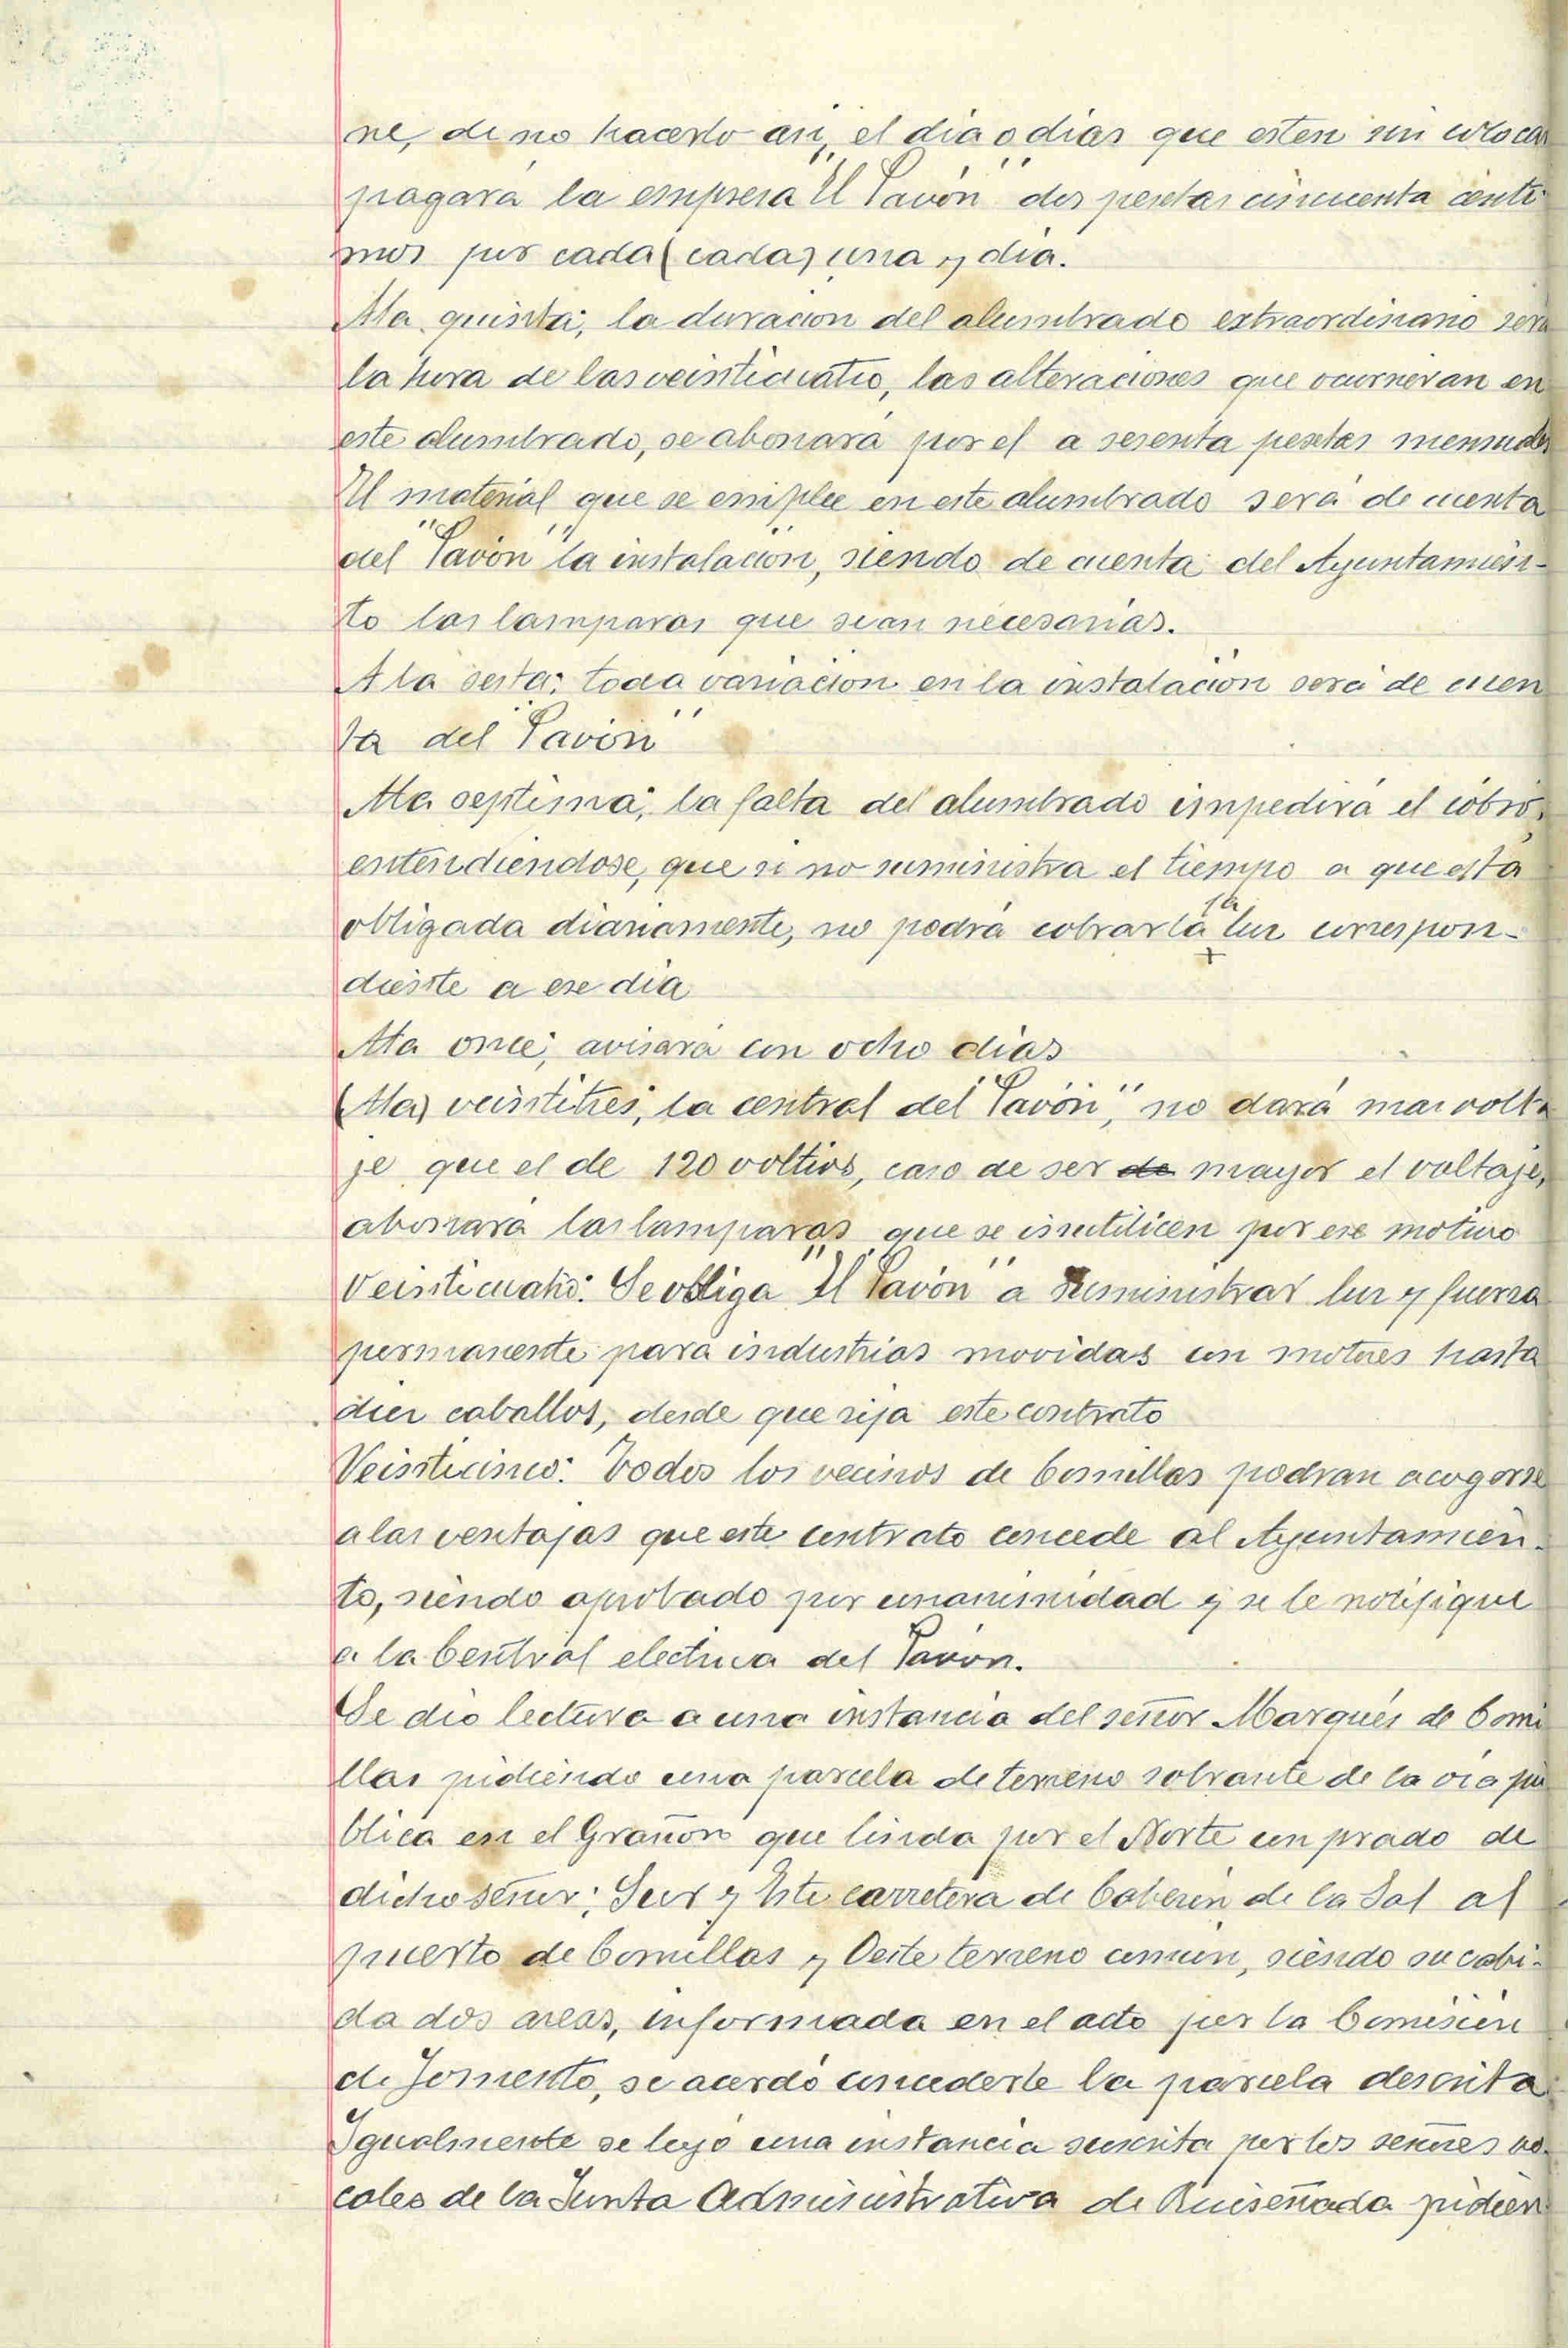 ne, de no hacerlo asi, el dia o dias que esten sin colocar
pagará la empresa "El Pavón" dos pesetas cincuenta centi
mos por cada (cada) una y dia.
A la quinta; la duracion del alumbrado extraordinario será
la hora de las veinticuatro, las alteraciones que ocurrieran en
este alumbrado, se abonará por el a sesenta pesetas mensuales
El material que se emplee en este alumbrado será de cuenta
del "Pavón" la instalacion, siendo de cuenta del Ayuntamien-
to las lamparas que sean necesarias.
A la sesta; toda variacion en la instalación será de cuen
ta del "Pavón"
A la septima; la falta del alumbrado impedirá el cobro,
entendiendose, que si no suministra el tiempo a que está
obligada diariamente, no podrá cobrar la luz correspon-
diente a ese dia
A la once; avisará con ocho dias
(A la) veintitres, la central del "Pavón", no dará mas volta
je que el de 120 voltios, caso de ser de mayor el voltaje,
abonará las lamparas que se inutilicen por ese motivo
Veinticuatro: Se obliga "El Pavón" a suministrar luz y fuerza
permanente para industrias movidas con motores hasta
diez caballos, desde que rija este contrato
Veinticinco: Todos los vecinos de Comillas podran acogerse
a las ventajas que este contrato concede al Ayuntamien-
to, siendo aprobado por unanimidad y se le notifique
a la Central electrica del Pavón.
Se dio lectura a una instancia del señor Marqués de Comi
llas pidiendo una parcela de terreno sobrante de la via pú
blica en el Grañon que linda por el Norte con prado de
dicho señor; Sur y Este carretera de Cabezón de la Sal al
puerto de Comillas y Oeste terreno comun, siendo su cabi-
da dos areas, informada en el acto por la Comisión
de Fomento, se acordó concederle la parcela descrita
Igualmente se leyó una instancia suscrita por los señores vo-
cales de la Junta Administrativa de Ruiseñada pidien